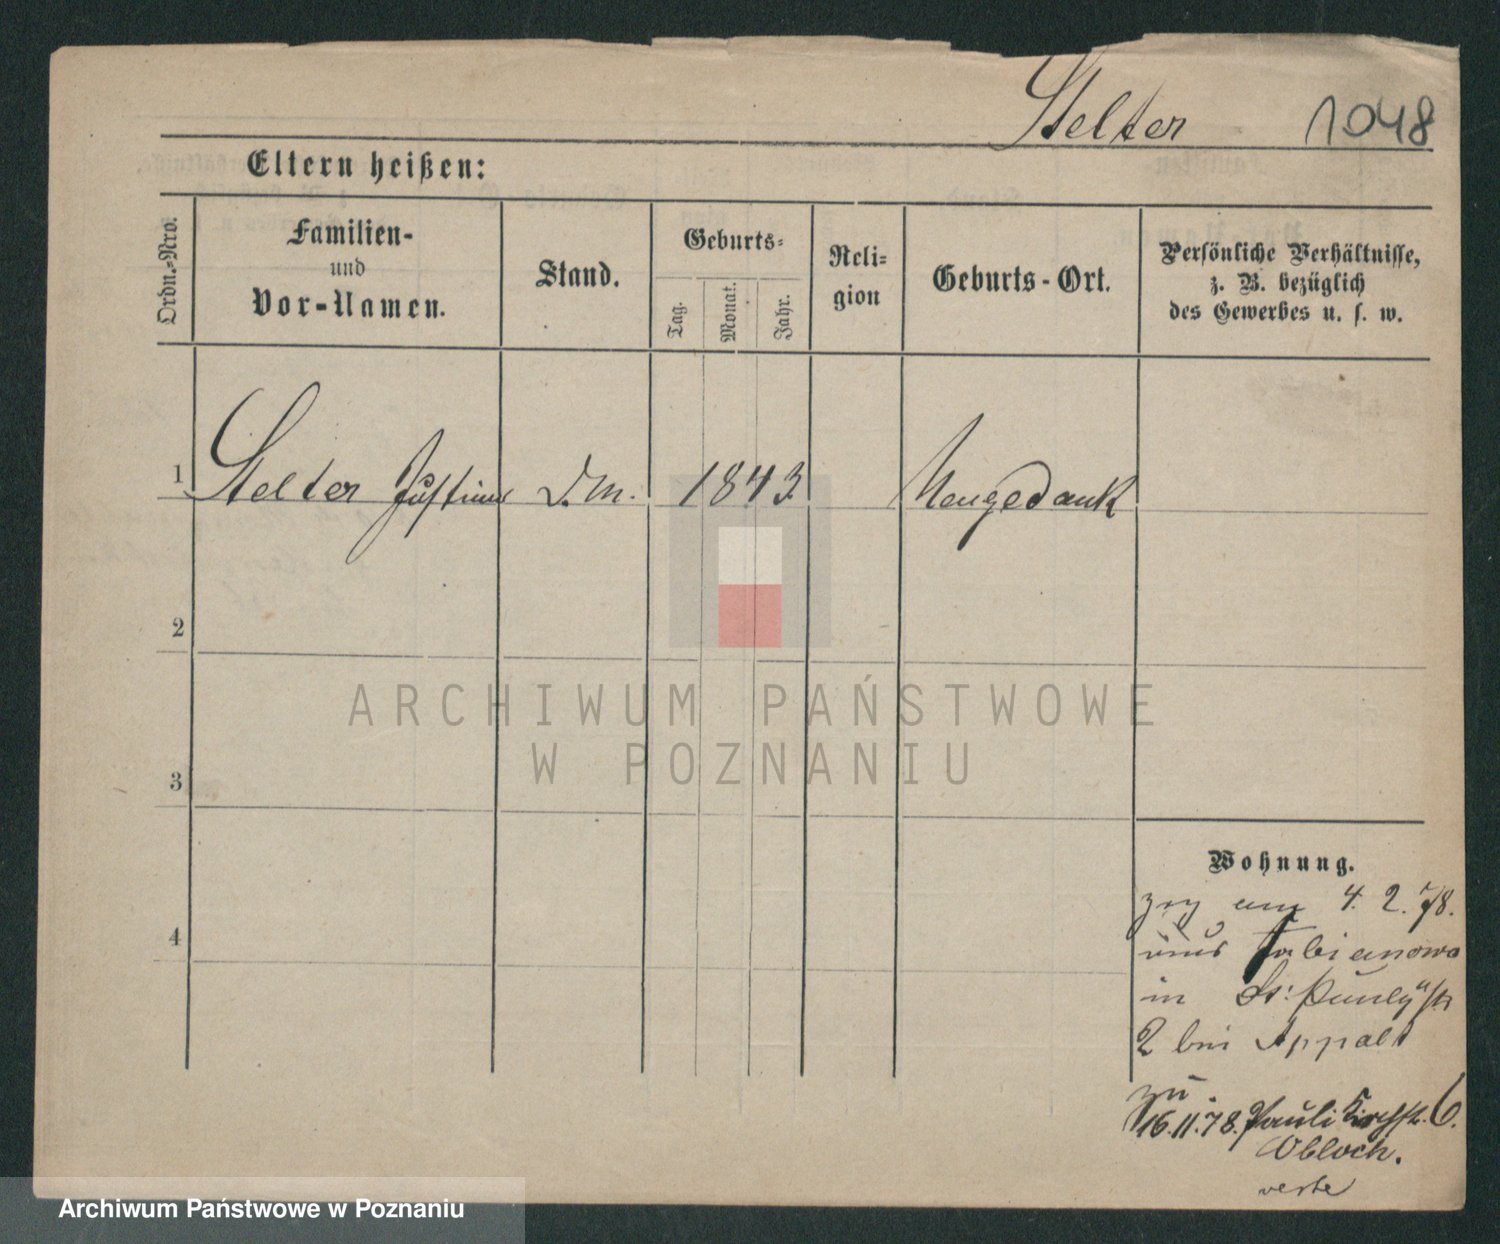 Stelter 1048
Eltern heißen:
Ordn.-Nro.
Familien-
und
Vor-Namen.
Stand.
Geburts-
Tag.
Monat.
Jahr.
Reli-
gion
Geburts-Ort.
Persönliche Verhältnisse,
z. B. bezüglich
des Gewerbes u. s. w.
1 Stelter Justine D. M. 1843 Neugedank
2
3
4
ARCHIWUM PAŃSTWOWE
W POZNANIU
Wohnung.
zog am 4. 2. 78.
aus Fabianowo
in St.
2 bei Appalt
zu
16.11.78. Pauli Kirchstr. 6.
Obloch.
verte
Archiwum Państwowe w Poznaniu